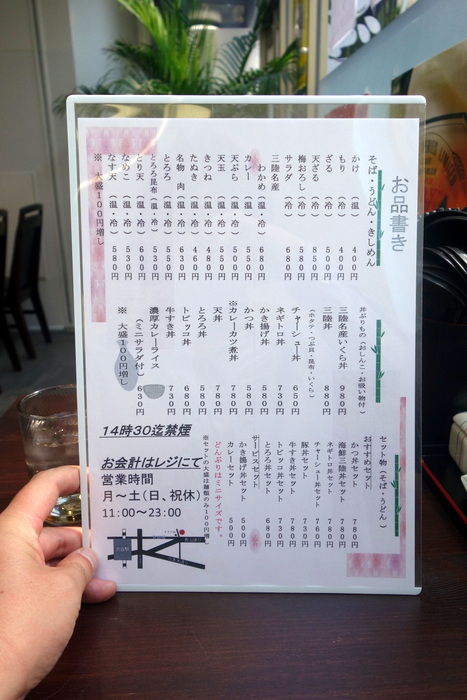 お品書き
そば・うどん・きしめん
かけ （温） 400円
もり （冷） 400円
ざる （冷） 500円
天ざる （冷） 850円
梅おろし （冷） 580円
サラダ （冷） 680円
三陸名産
わかめ （温・冷） 680円
カレー （温）
天ぷら （温・冷）
天玉 （温・冷）
きつね （温・冷） 480円
たぬき （温・冷）
名物 肉 （温・冷） 630円
とろろ （温・冷）
とろろ昆布 （温・冷） 530円
とり天 （温・冷） 630円
なめこ （温・冷） 550円
なす天 （温・冷） 580円
※ 大盛100円増し
丼ぶりもの（おしんこ・お吸い物付）
三陸名産いくら丼 980円
三陸丼 880円
（ホタテ・つぶ貝・昆布・いくら）
チャーシュー丼 650円
ネギトロ丼 730円
かき揚げ丼 500円
かつ丼 580円
※カレーカツ煮丼 780円
天丼 780円
とろろ丼 580円
トビッコ丼 680円
牛すき丼 730円
濃厚カレーライス
（ミニサラダ付） 630円
※ 大盛100円増し
セット物（そば・うどん）
おすすめセット
かつ丼セット 780円
海鮮三陸丼セット 780円
ネギトロ丼セット 780円
チャーシュー丼セット 760円
豚丼セット 730円
牛すき丼セット 780円
トビッコ丼セット 730円
とろろ丼セット 680円
サービスセット
かき揚げ丼セット 500円
カレーセット 500円
どんぶりはミニサイズです。
※セットの大盛は麺類のみ100円増し
14時30迄禁煙
お会計はレジにて
営業時間
月～土（日、祝休）
11:00～23:00